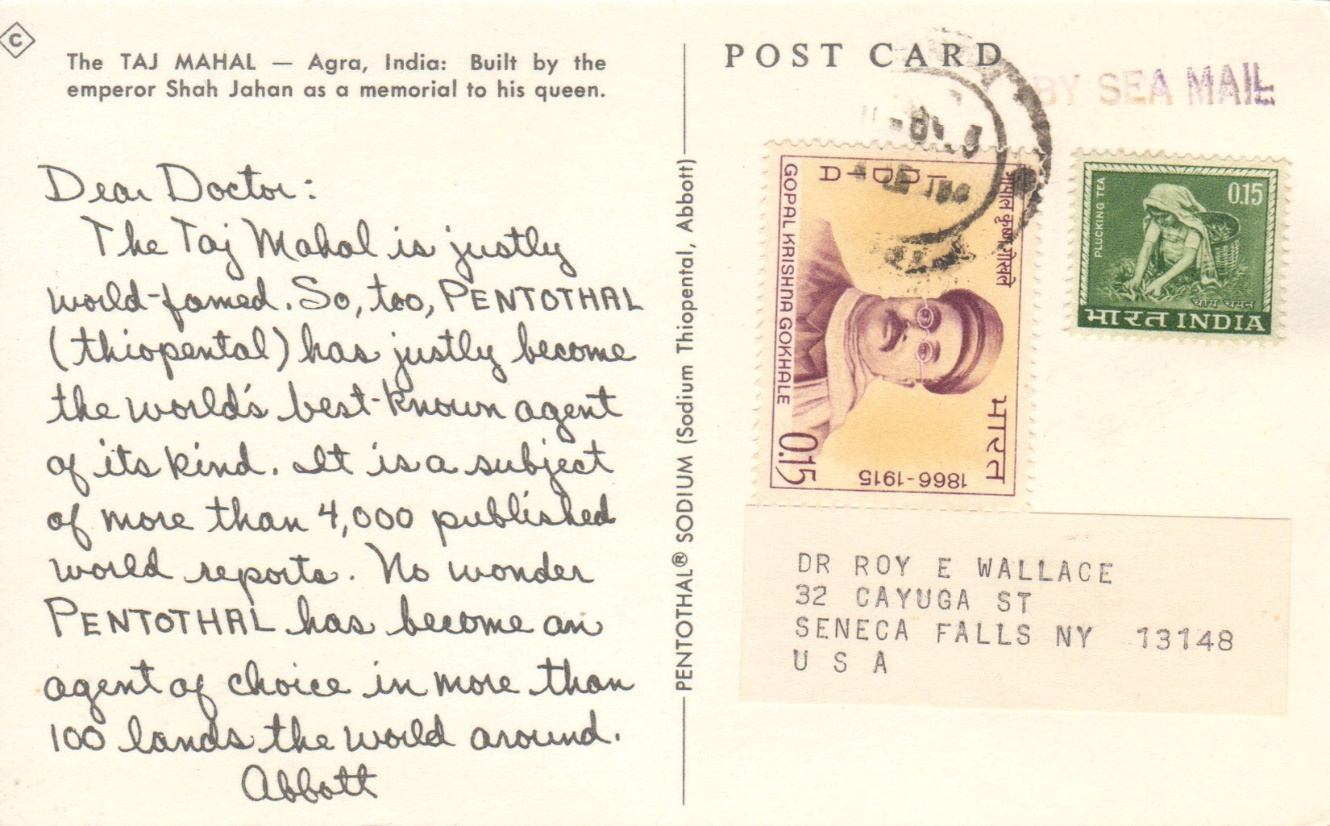 C
The TAJ MAHAL — Agra, India: Built by the
emperor Shah Jahan as a memorial to his queen.
Dear Doctor:
The Taj Mahal is justly
world-famed. So, too, PENTOTHAL
(thiopental) has justly become
the world's best-known agent
of its kind. It is a subject
of more than 4,000 published
world reports. No wonder
PENTOTHAL has become an
agent of choice in more than
100 lands the world around.
Abbott
PENTOTHAL® SODIUM (Sodium Thiopental, Abbott)
POST CARD
BY SEA MAIL
GOPAL KRISHNA GOKHALE
गोपाल कृष्ण गोखले
भारत
0.15
1866-1915
PLUCKING TEA
0.15
चाय चयन
भारत INDIA
DR ROY E WALLACE
32 CAYUGA ST
SENECA FALLS NY 13148
U S A